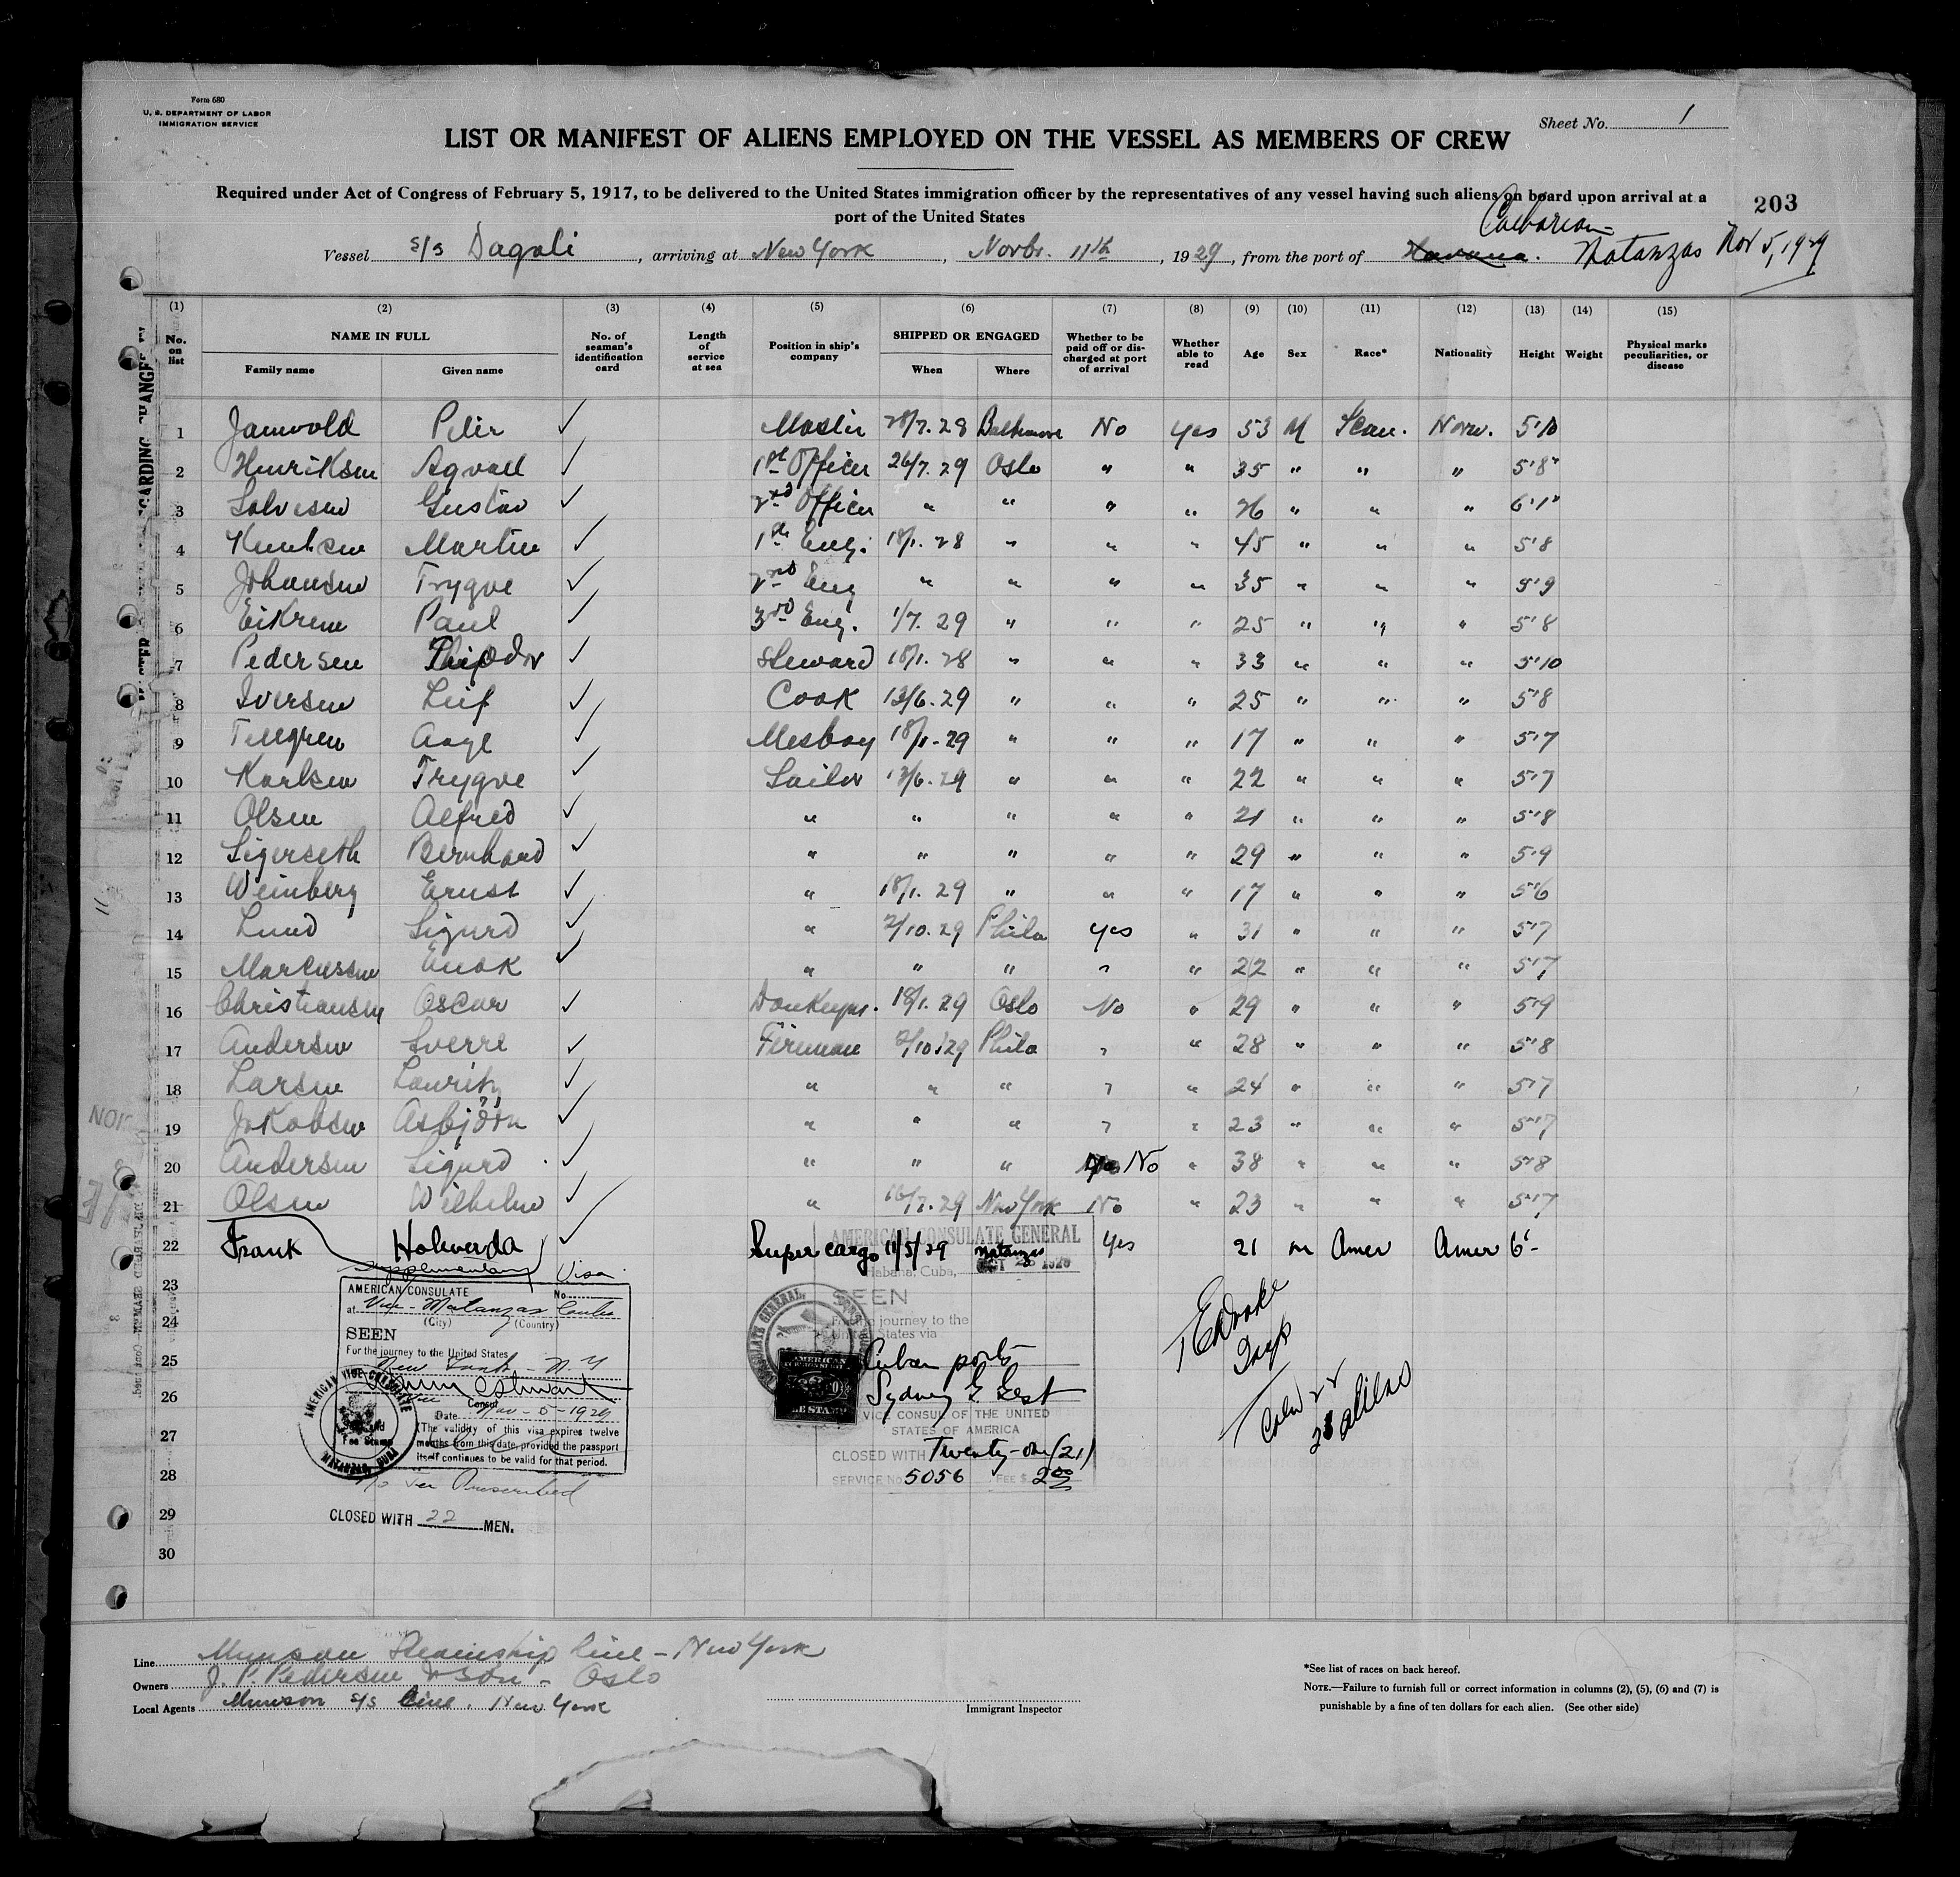 Form 680
U. S. DEPARTMENT OF LABOR
IMMIGRATION SERVICE
Sheet No. 1
LIST OR MANIFEST OF ALIENS EMPLOYED ON THE VESSEL AS MEMBERS OF CREW
Required under Act of Congress of February 5, 1917, to be delivered to the United States immigration officer by the representatives of any vessel having such aliens on board upon arrival at a
port of the United States
203
Vessel S/S Dagali, arriving at New York, Novbr. 11th, 1929, from the port of Havana. Matanzas Nov 5, 1929
(1) (2) (3) (4) (5) (6) (7) (8) (9) (10) (11) (12) (13) (14) (15)
No. on list NAME IN FULL Family name Given name No. of seaman's identification card Length of service at sea Position in ship's company SHIPPED OR ENGAGED When Where Whether to be paid off or discharged at port of arrival Whether able to read Age Sex Race* Nationality Height Weight Physical marks peculiarities, or disease
1 Jamvold Peter ✓ Master 28/7.28 Baltimore No yes 53 M Scan. Norw. 5'10
2 Henriksen Agvall ✓ 1st Officer 26/7.29 Oslo " " 35 " " " 5'8"
3 Solvesen Gustav ✓ 2nd Officer " " " " 26 " " " 6'1"
4 Knutsen Martin ✓ 1st Eng. 18/1.28 " " " 45 " " " 5'8
5 Johansen Trygve ✓ 2nd Eng " " " " 35 " " " 5'9
6 Eikrem Paul ✓ 3rd Eng. 1/7.29 " " " 25 " " " 5'8
7 Pedersen ✓ Steward 18/1.28 " " " 33 " " " 5'10
8 Iversen Leif ✓ Cook 13/6.29 " " " 25 " " " 5'8
9 Tellgren Aage ✓ Mesboy 18/1.29 " " " 17 " " " 5'7
10 Karlsen Trygve ✓ Sailor 13/6.29 " " " 22 " " " 5'7
11 Olsen Alfred ✓ " " " " " 21 " " " 5'8
12 Sigerseth Bernhard ✓ " " " " " 29 " " " 5'9
13 Weinberg Ernst ✓ " 18/1.29 " " " 17 " " " 5'6
14 Lund Sigurd ✓ " 2/10.29 Phila yes " 31 " " " 5'7
15 Marcussen Enok ✓ " " " " " 22 " " " 5'7
16 Christiansen Oscar ✓ Donkeym. 18/1.29 Oslo No " 29 " " " 5'9
17 Andersen Sverre ✓ Fireman 2/10.29 Phila " " 28 " " " 5'8
18 Larsen Lauritz ✓ " " " " " 24 " " " 5'7
19 Jakobsen Asbjörn ✓ " " " " " 23 " " " 5'7
20 Andersen Sigurd ✓ " " " No " 38 " " " 5'8
21 Olsen Wilhelm ✓ " 16/7.29 New York No " 23 " " " 5'7
22 Frank Holwerda ✓ Supercargo 11/5/29 Matanzas yes 21 m Amer Amer 6'-
23
24
25
26
27
28
29
30
Supplementary Visa
AMERICAN CONSULATE No.
at Vice - Matanzas Cuba
(City) (Country)
SEEN
For the journey to the United States
New York - N.Y
Vice Consul
Date Nov - 5 - 1929
(The validity of this visa expires twelve
months from this date, provided the passport
itself continues to be valid for that period.
AMERICAN VICE CONSULATE
MATANZAS, CUBA
No Fee Prescribed
CLOSED WITH 22 MEN.
AMERICAN CONSULATE GENERAL
Habana, Cuba, OCT 1929
SEEN
For the journey to the
United States via
Cuban ports
Sydney G. Gest
VICE CONSUL OF THE UNITED
STATES OF AMERICA
CLOSED WITH Twenty-one (21)
SERVICE No. 5056 FEE $ 2.00
Drake
Insp
Crew 22
aliens
Line Munson Steamship Line - New York
Owners J. P. Pedersen & Son - Oslo
Local Agents Munson S/S Line. New York
Immigrant Inspector
*See list of races on back hereof.
NOTE.—Failure to furnish full or correct information in columns (2), (5), (6) and (7) is
punishable by a fine of ten dollars for each alien. (See other side)